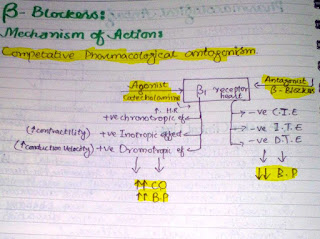 β - Blockers:
Mechanism of Action:
Competative Pharmacological antagonism
Agonist
Catecholamine
β₁ receptor
heart
Antagonist
β-Blockers
↑ H.R
+ve chronotropic ef
-ve C.I.E
(↑contractility) +ve Inotropic effect
-ve I.T.E
(↑conduction velocity) +ve Dromotropic ef
-ve D.T.E
↑↑ CO
↑↑ B.P
↓↓ B.P